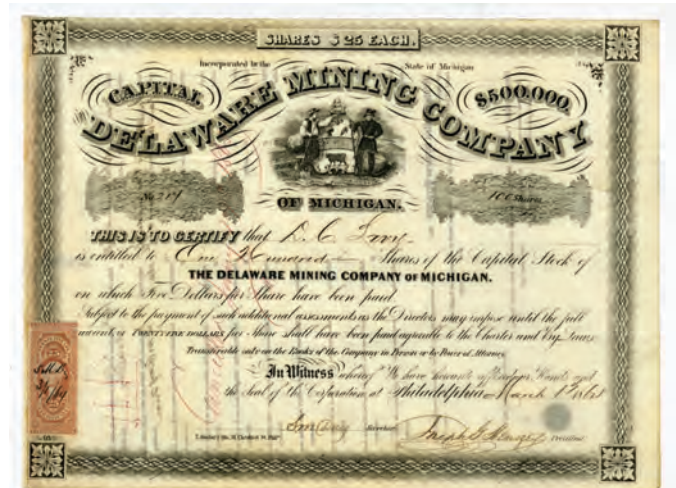 SHARES $25 EACH.
Incorporated by the State of Michigan
CAPITAL $500,000.
DELAWARE MINING COMPANY
OF MICHIGAN.
No 217
100 Shares
THIS IS TO CERTIFY that D. C.
is entitled to One Hundred Shares of the Capital Stock of
THE DELAWARE MINING COMPANY OF MICHIGAN.
on which Five Dollars per Share have been paid
Subject to the payment of such additional assessments as the Directors may impose until the full
amount of TWENTY FIVE DOLLARS per Share shall have been paid agreeable to the Charter and Bye Laws
Transferable only on the Books of the Company in Person or by Power of Attorney
In Witness whereof We have hereunto affixed our Hands and
the Seal of the Corporation at Philadelphia March 1st
President